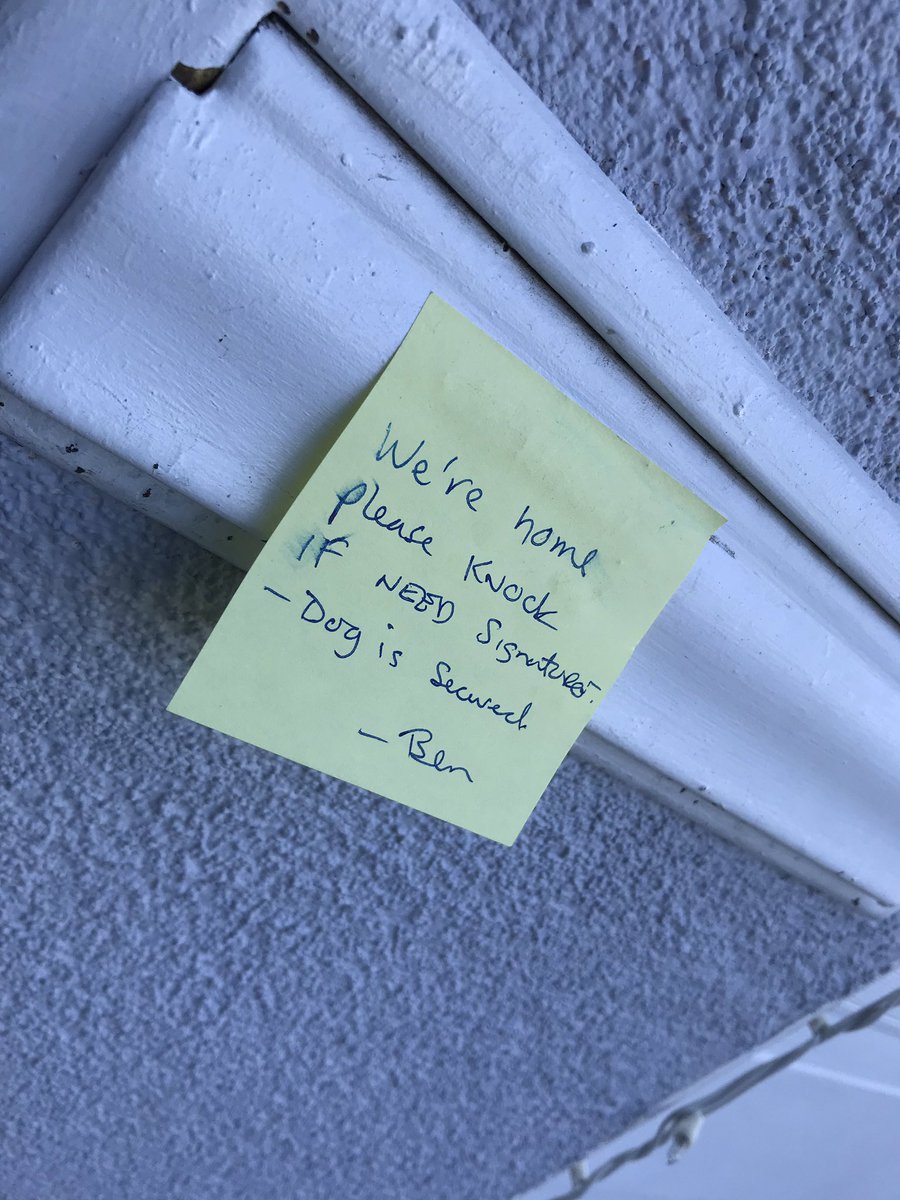 We're home
please KNOCK
IF NEED SIgnature.
- Dog is secured
- Ben